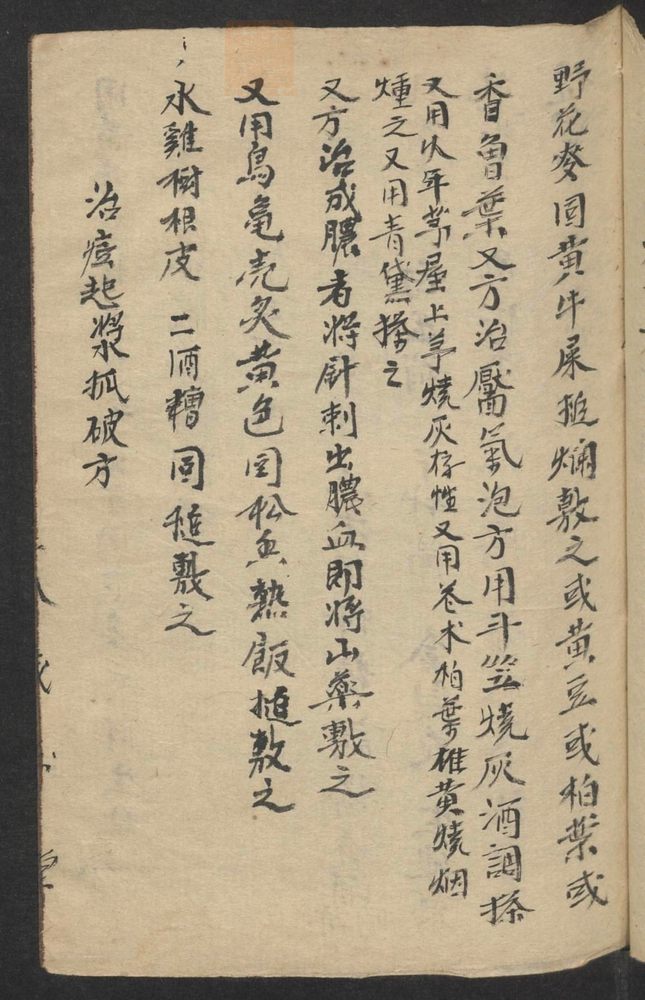 野花麥同黃牛屎搥爛敷之或黃豆或柏葉或
香魯葉又方治靨氣泡方用斗笠燒灰酒調搽
又用久年茅屋上茅燒灰存性又用苍术柏葉雄黃燒烟
燻之又用青黛搽之
又方治成膿者將針刺出膿血即將山藥敷之
又用烏龜壳炙黃色同松魚熟飯搥敷之
水雞樹根皮 二酒糟 同搥敷之
治痘起漿抓破方